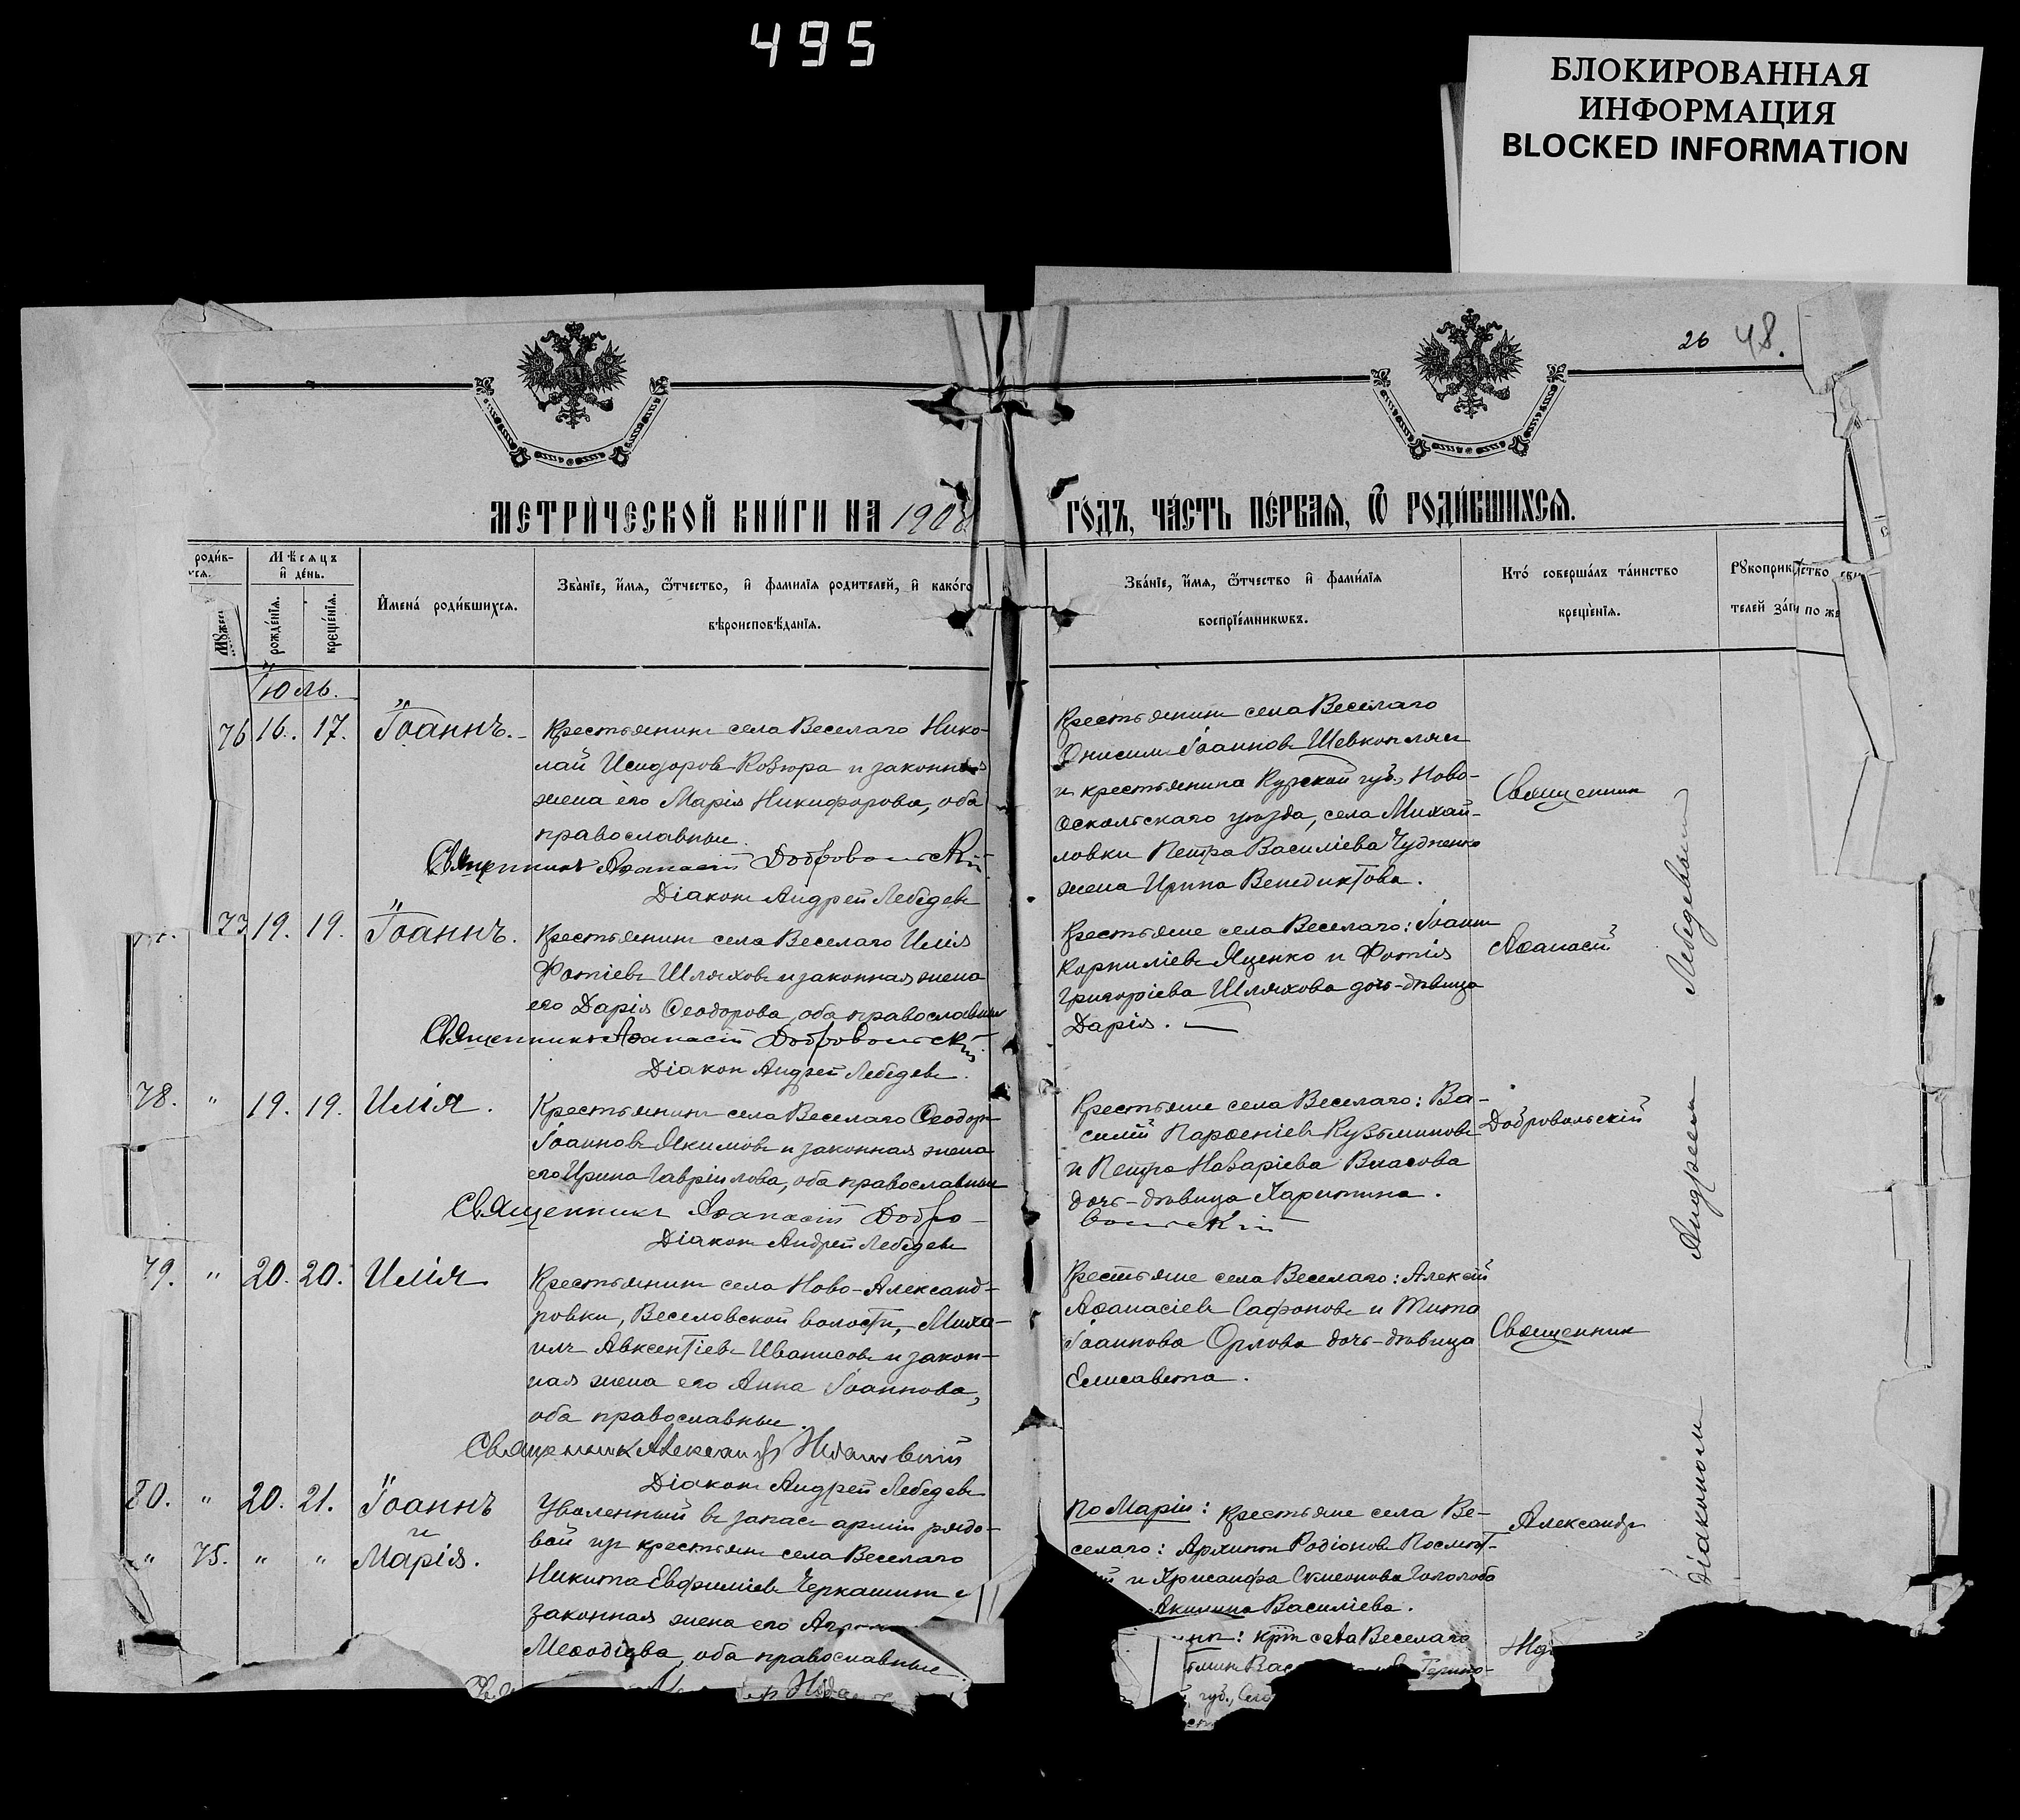 495
БЛОКИРОВАННАЯ
ИНФОРМАЦИЯ
BLOCKED INFORMATION
26 48.
МЕТРИ́ЧЕСКОЙ КНИ́ГИ НА 1908
ГО́ДЪ, ЧА́СТЬ ПЕ́РВАЯ, Ѿ РОДИ́ВШИХСЯ.
Мѣсяцъ
и҆ де́нь.
рожде́нїя.
креще́нїя.
И҆мена̀ роди́вшихся.
Зва́нїе, и҆́мя, ѻ҆́тчество, и҆ фами́лїя родителей, и҆ како́го
вѣроисповѣ́данїя.
Зва́нїе, и҆́мя, ѻ҆́тчество и҆ фами́лїя
воспрїе́мниковъ.
Кто́ соверша́лъ та́инство
креще́нїя.
Іюль.
76 16. 17. Іоаннъ.
Крестьянинъ села Веселаго Нико-
лай Исидоровъ Козюра и законная
жена его Марія Никифорова, оба
православные.
Священникъ Аѳанасій Добровольскій
Діаконъ Андрей Лебедевъ
Крестьянинъ села Веселаго
Онисимъ Іоанновъ Шевкоплясъ
и крестьянина Курской губ., Ново-
оскольскаго уѣзда, села Михай-
ловки Петра Василіева Чудненко
жена Ирина Венедиктова.
Священникъ
77 19. 19. Іоаннъ.
Крестьянинъ села Веселаго Илія
Фотіевъ Шляховъ и законная жена
его Дарія Ѳеодорова, оба православные
Священникъ Аѳанасій Добровольскій
Діаконъ Андрей Лебедевъ.
Крестьяне села Веселаго: Іоаннъ
Корниліевъ Яценко и Фотія
Григоріева Шляхова дочь-дѣвица
Дарія.
Аѳанасій
78. " 19. 19. Илія.
Крестьянинъ села Веселаго Ѳеодоръ
Іоанновъ Якимовъ и законная жена
его Ирина Гавріилова, оба православные
Священникъ Аѳанасій Добро-
вольскій
Діаконъ Андрей Лебедевъ
Крестьяне села Веселаго: Ва-
силій Парѳеніевъ Кузьминовъ
и Петра Назаріева Власова
дочь-дѣвица Харитина.
Добровольскій
79. " 20. 20. Илія
Крестьянинъ села Ново-Александ-
ровки, Веселовской волости, Миха-
илъ Авксентіевъ Иванисовъ и закон-
ная жена его Анна Іоаннова,
оба православные.
Священникъ Александръ
Діаконъ Андрей Лебедевъ
Крестьяне села Веселаго: Алексій
Аѳанасіевъ Сафоновъ и Тита
Іоаннова Орлова дочь-дѣвица
Елисавета.
Священникъ
80. " 20. 21. Іоаннъ
и
" 75. " " Марія.
Уволенный въ запасъ арміи рядо-
вой изъ крестьянъ села Веселаго
Никита Евфиміевъ Черкашинъ и
законная жена его
Меѳодіева, оба православные
По Маріи: крестьяне села Ве-
селаго: Архипъ Родіоновъ
и Хрисанфа Симеонова Гололоба
Акилина Василіева.
села Веселаго
губ.,
Александръ
Діакономъ Андреемъ Лебедевымъ